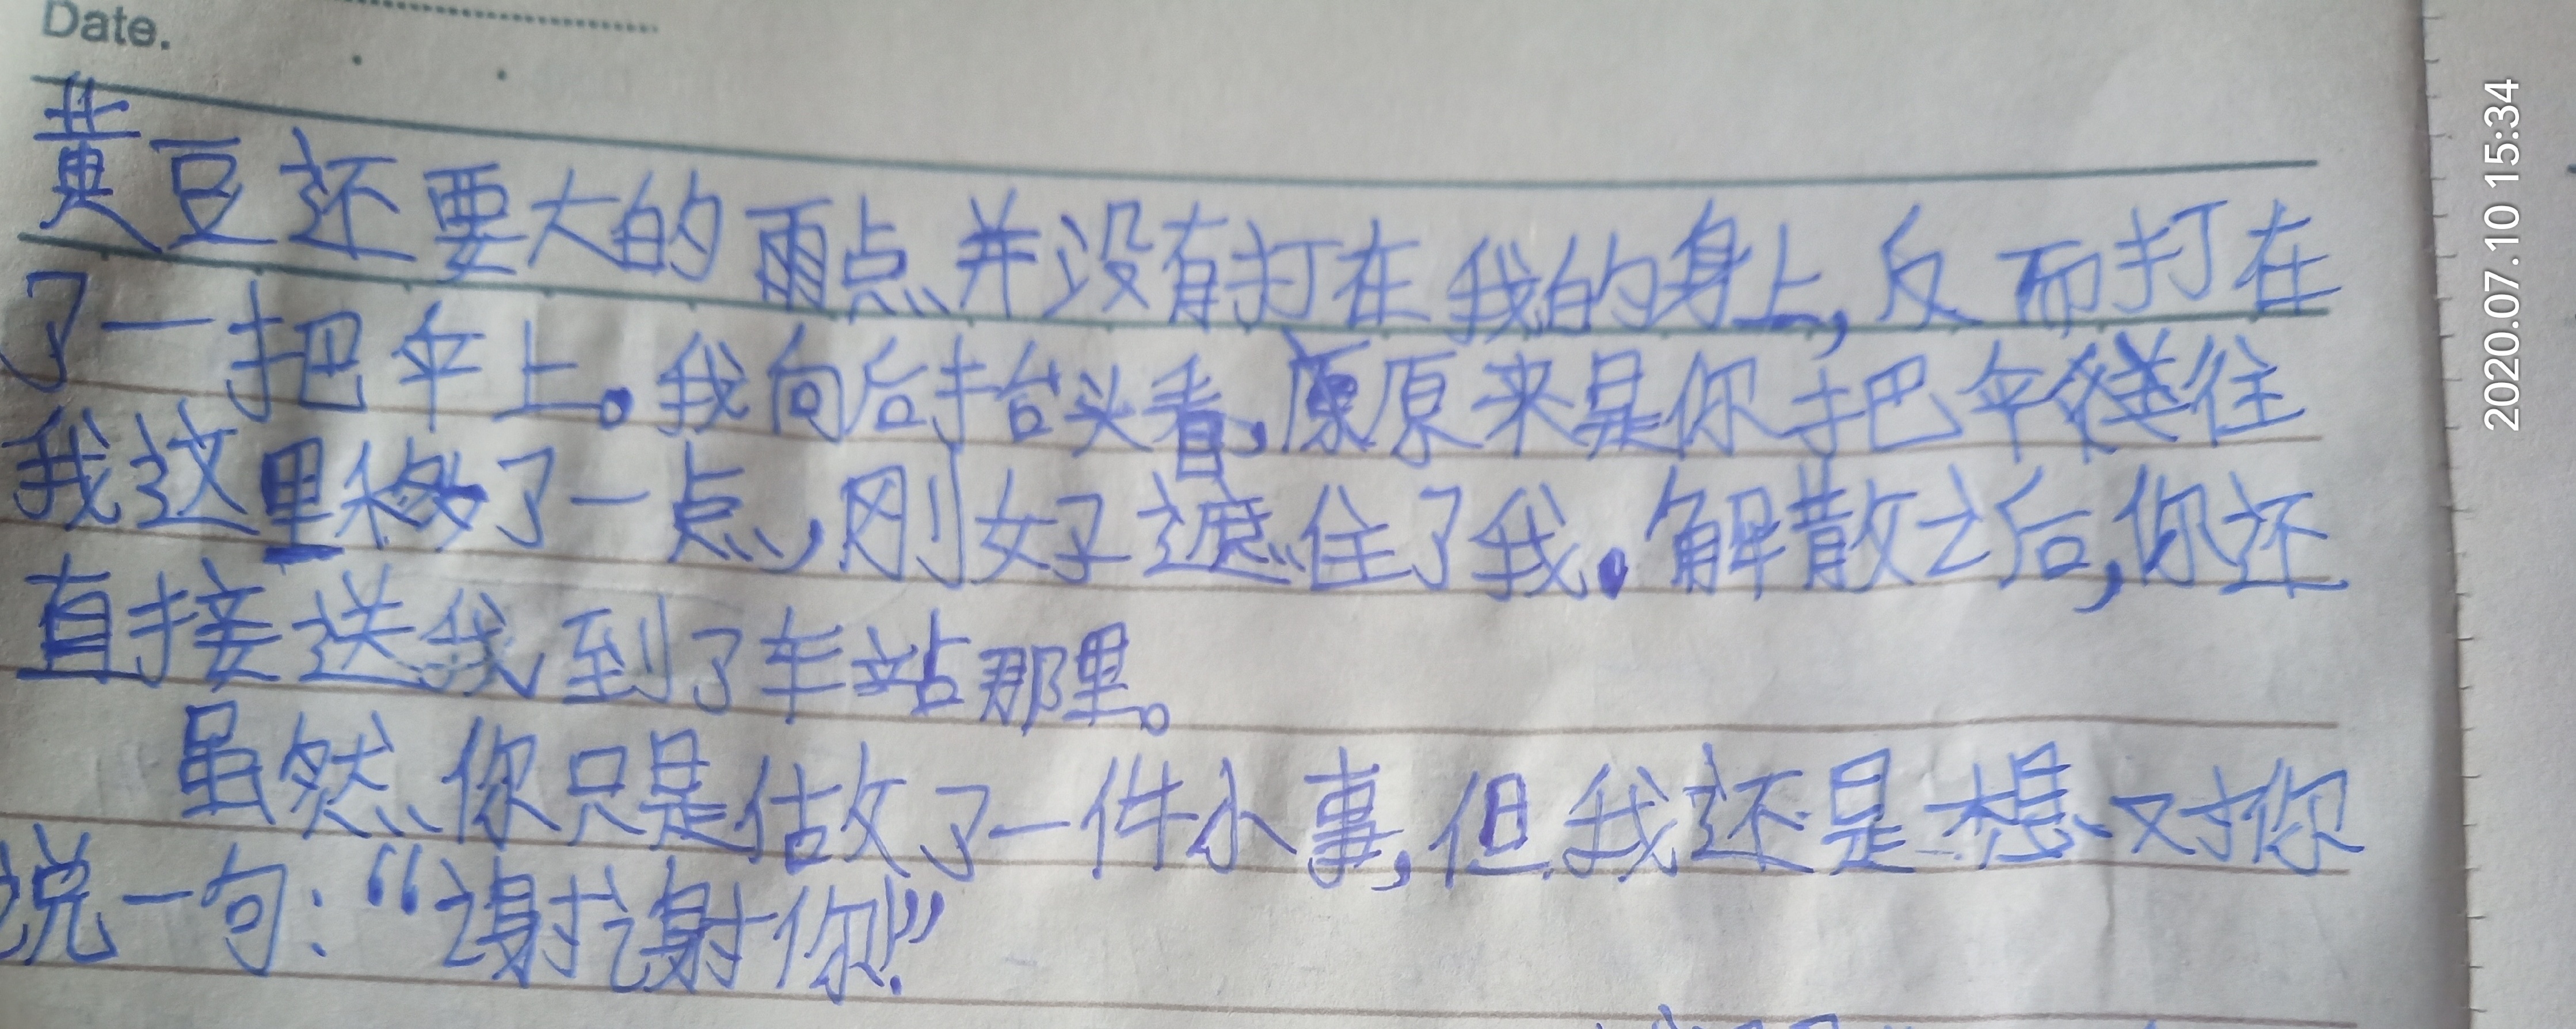 Date.
黄豆还要大的雨点并没有打在我的身上,反而打在
了一把伞上。我向后抬头看,原来是你把伞往
我这里移了一点,刚好遮住了我。解散之后,你还
直接送我到了车站那里。
虽然你只是做了一件小事,但我还是想对你
说一句:“谢谢你!”
2020.07.10 15:34